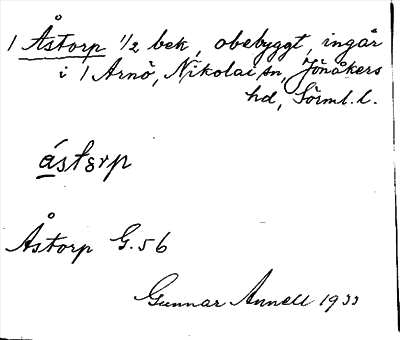 1 Åstorp 1/2 bek, obebyggt, ingår
i 1 Arnö, Nikolai sn, Jönåkers
hd, Sörml. l.
ástɔrp
Åstorp G. 56
Gunnar Annell 1933